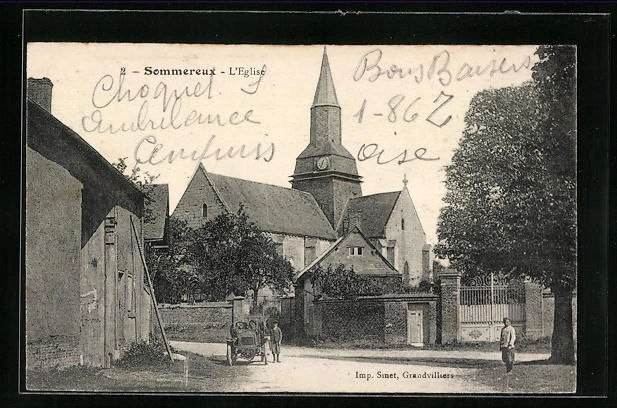 2 – Sommereux – L'Eglise
Choquet J
Bons Baisers
Ambulance
1-86
Oise
Imp. Sinet, Grandvilliers